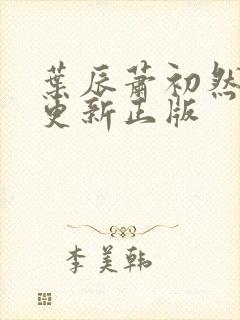 葉辰蕭初然
更新正版
李美韩